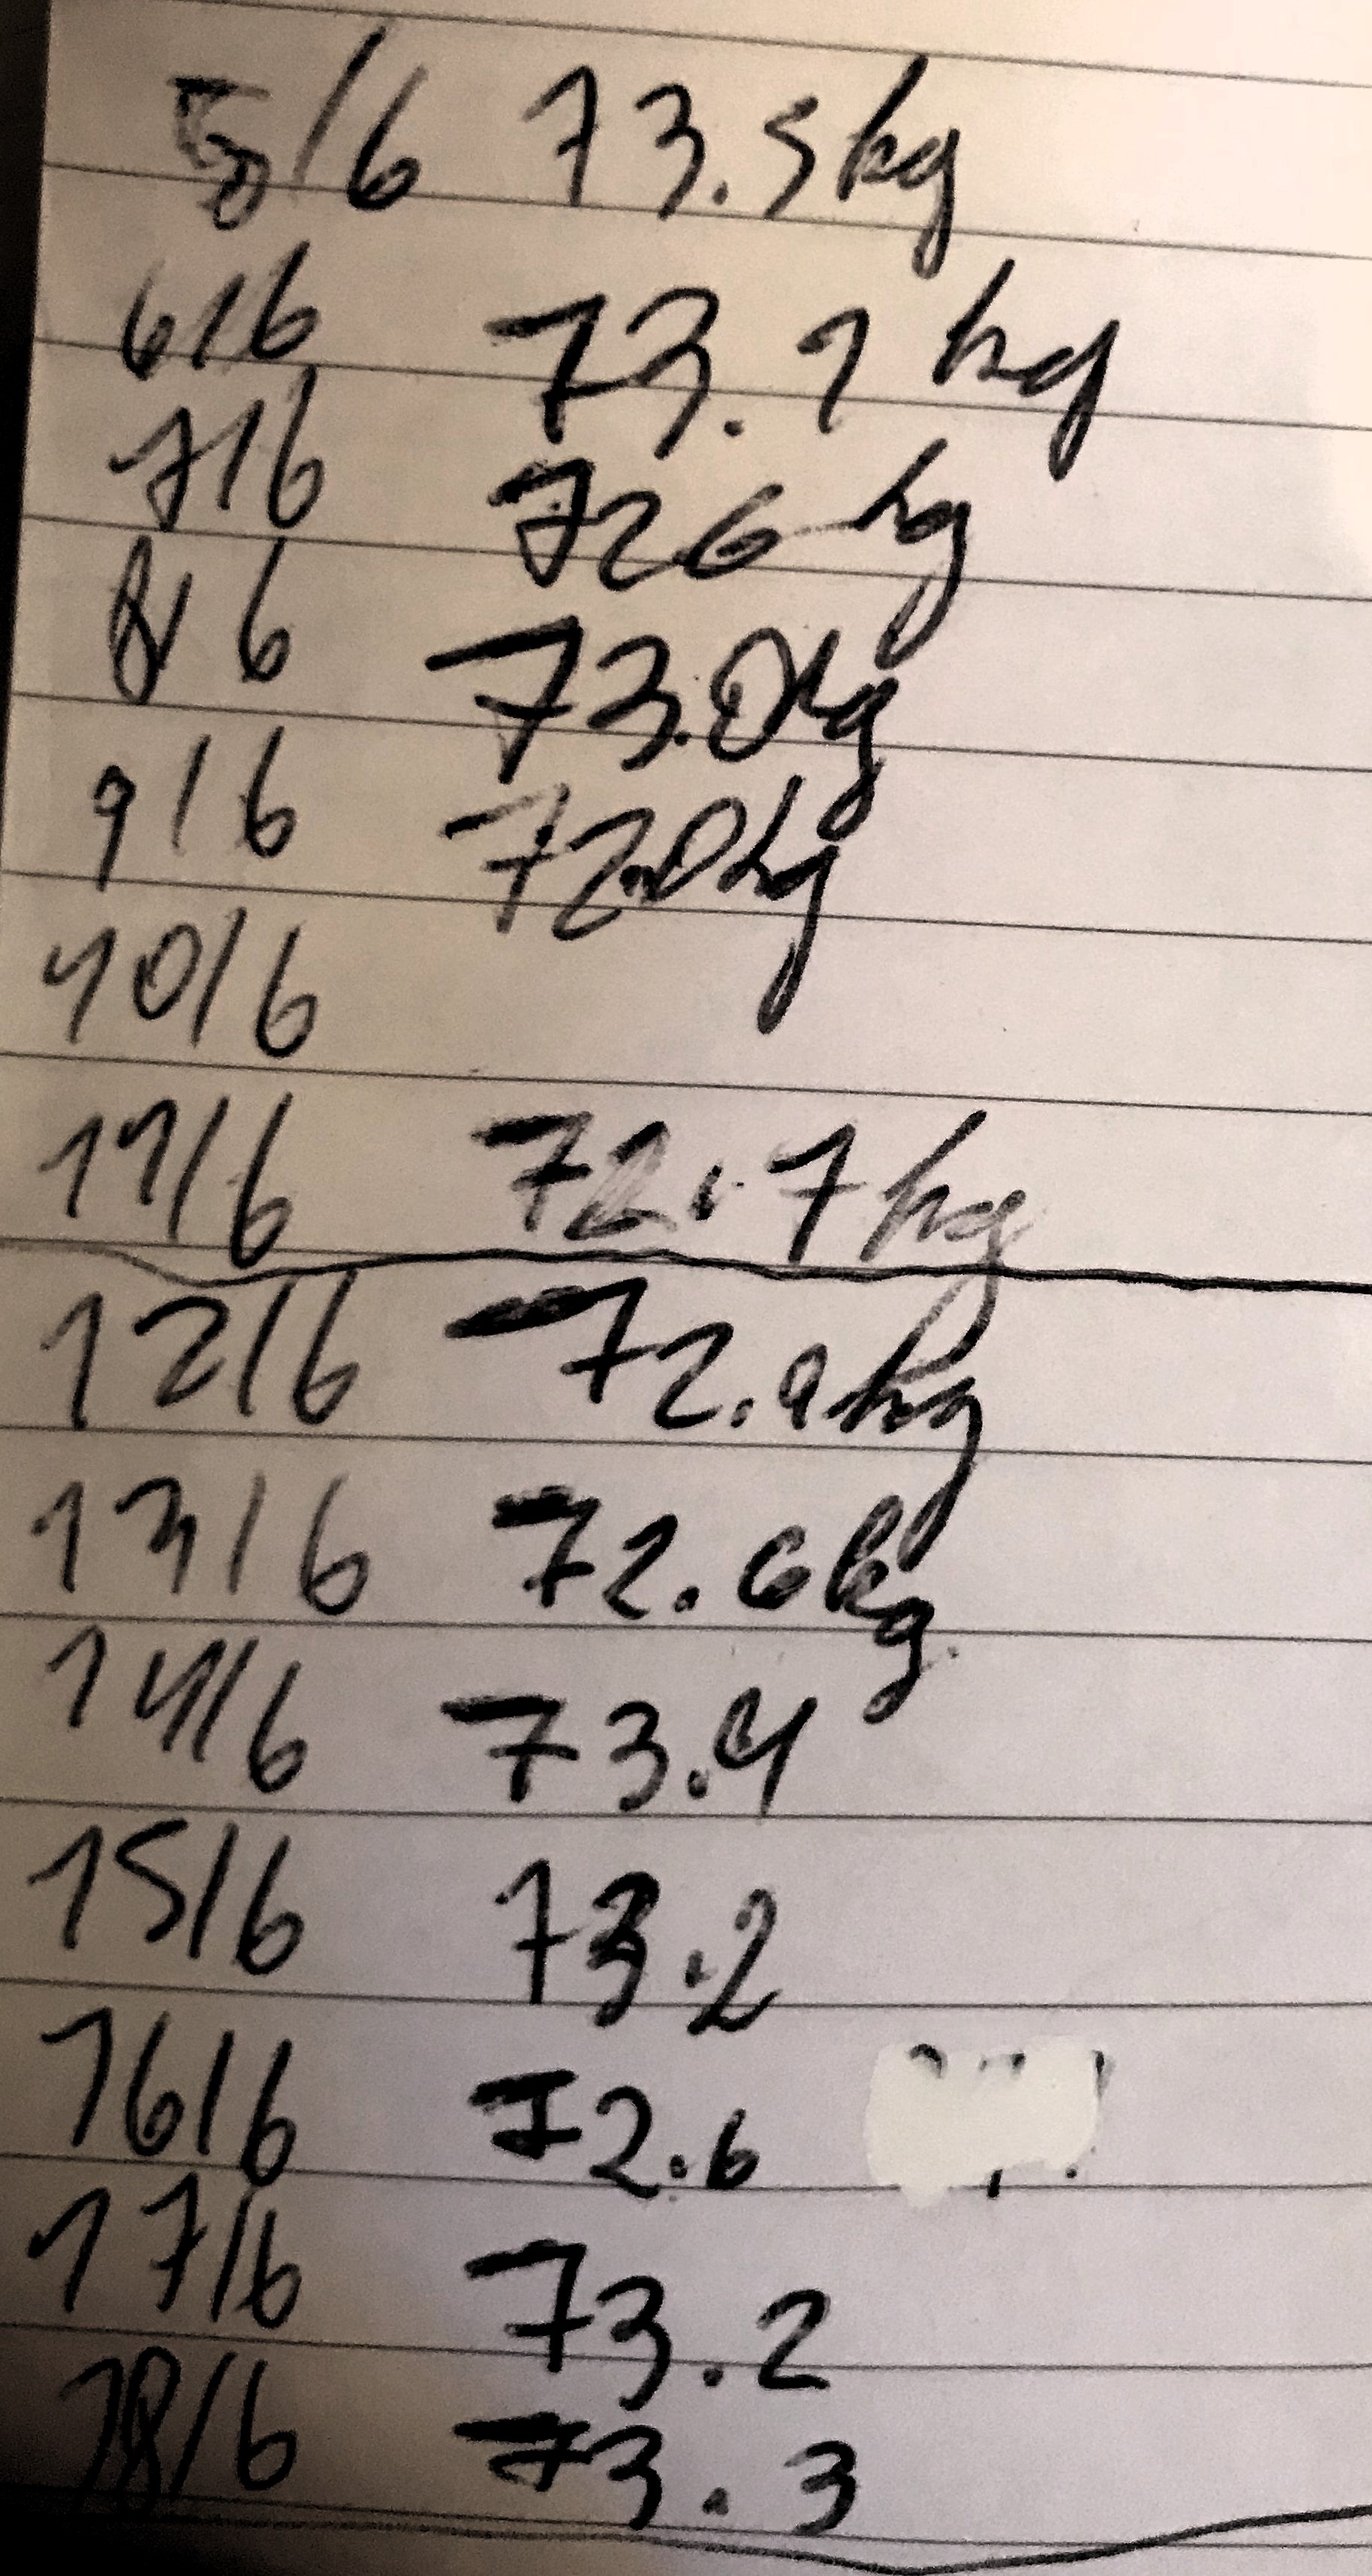 5/6 73.5kg
6/6 73.1 kg
7/6 72.6 kg
8/6 73.0kg
9/6 72.0kg
10/6
11/6 72.7kg
12/6 72.9kg
13/6 72.6kg
14/6 73.4
15/6 73.2
16/6 72.6
17/6 73.2
18/6 73.3